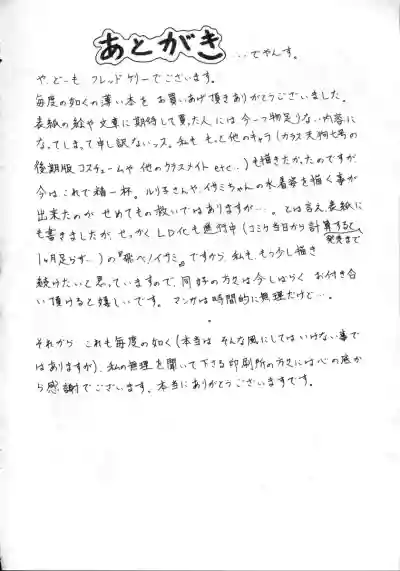 あとがき …でやんす。
や、どーも フレッドケリーでございます。
毎度の如くの薄い本を お買いあげ頂きありがとうございました。
表紙の絵や文章に期待して買った人には 今一つ物足りない内容に
なってしまって申し訳ないっス。私も もっと他のキャラ(カラス天狗七号の
後期版コスチュームや 他のクラスメイト etc..)も描きたかったのですが
今はこれで精一杯。ルリ子さんや、イサミちゃんの水着姿を描く事が
出来たのが せめてもの救いではありますが…。とは言え、表紙に
も書きましたが、せっかくLD化も進行中(コミケ当日から計算すると、発売まで
1ヶ月足らず…)の『飛べ!イサミ』ですから、私も、もう少し描き
続けたいと思っていますので、同好の方々は今しばらく お付き合
い頂けると嬉しいです。マンガは時間的に無理だけど…。
それから これも毎度の如く(本当は そんな風にしてはいけない事で
はありますが)、私の無理を聞いて下さる印刷所の方々には心の底か
ら感謝でございます。本当にありがとうございますです。